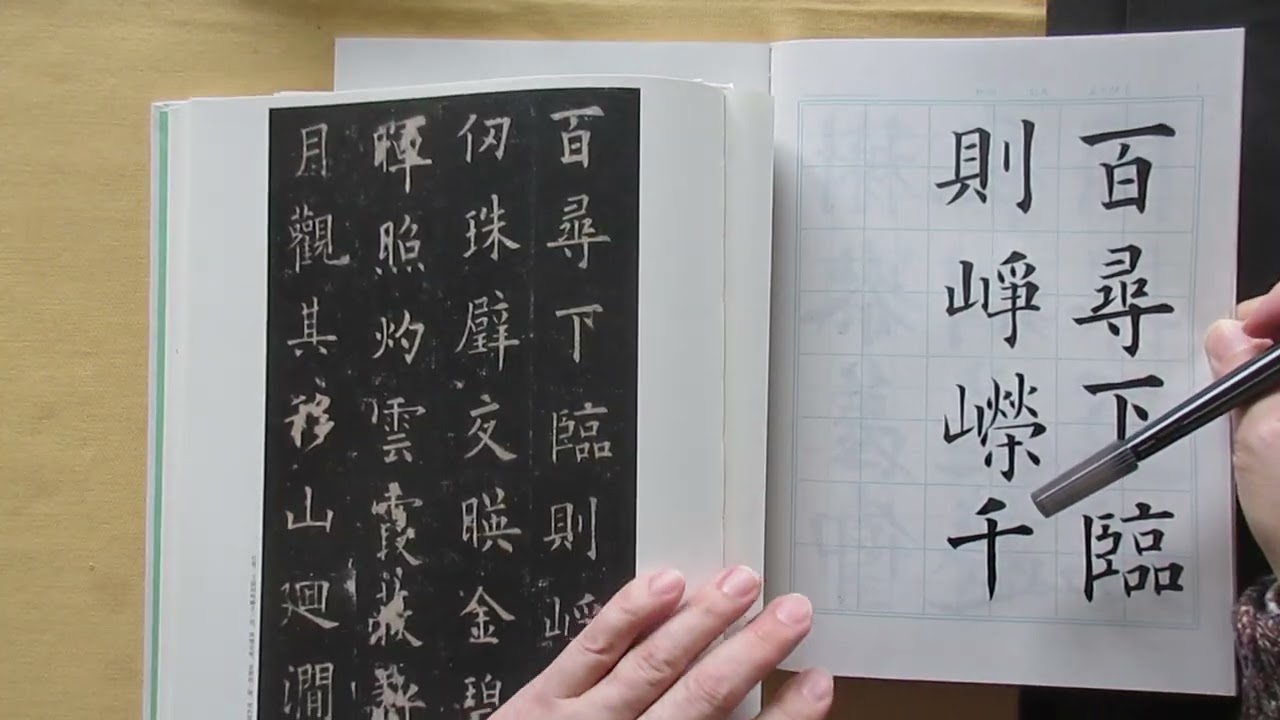 百尋下臨
則崢嶸千
百尋下臨則崢
仞珠璧交暎金碧
暉照灼雲霞蔽虧
月觀其移山迴澗